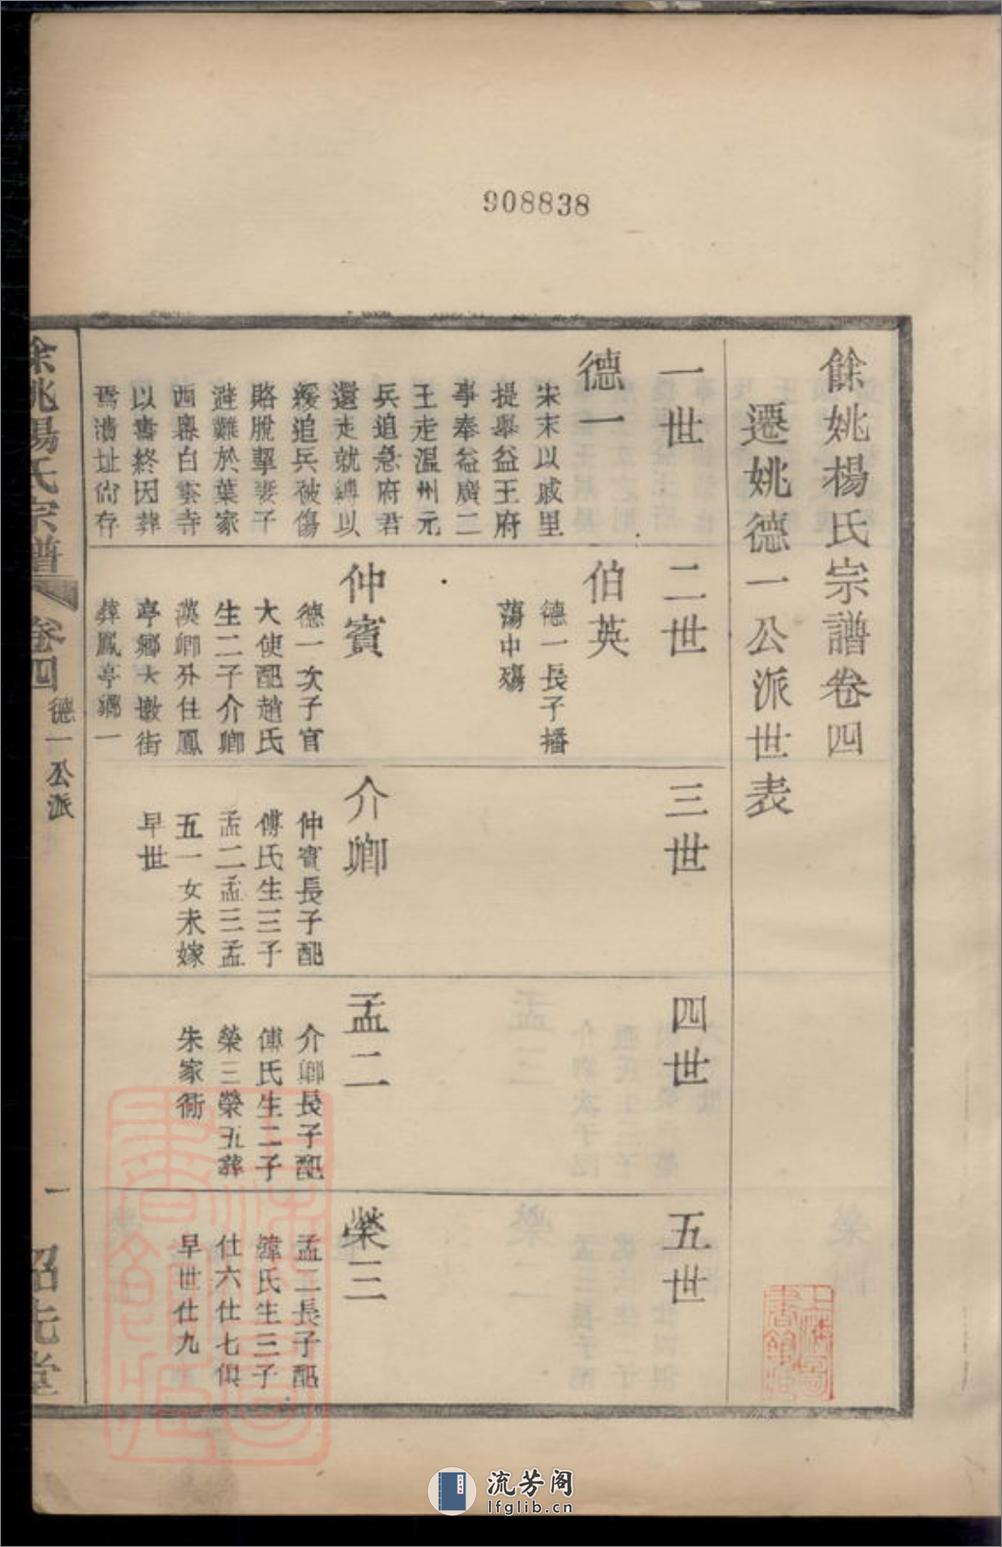 908838
餘姚楊氏宗譜卷四
遷姚德一公派世表
一世
德一
宋末以戚里
提舉益王府
事奉益廣二
王走溫州元
兵追急府君
還走就縛以
緩追兵被傷
賂脫挈妻子
避難於葉家
西嶴白雲寺
以壽終因葬
焉漬址尙存
二世
伯英
德一長子播
蕩中殤
仲賓
德一次子官
大使配趙氏
生二子介卿
漢卿外住鳳
亭鄉大墩街
葬鳳亭鄉一
三世
介卿
仲賓長子配
傅氏生三子
孟二孟三孟
五一女未嫁
早世
四世
孟二
介卿長子配
傅氏生二子
榮三榮五葬
朱家衕
五世
榮三
孟二長子配
韓氏生三子
仕六仕七俱
早世仕九
餘姚楊氏宗譜
卷四
德一公派
一
紹先堂
上海圖書館藏
上海圖書館藏
流芳阁
lfglib.cn